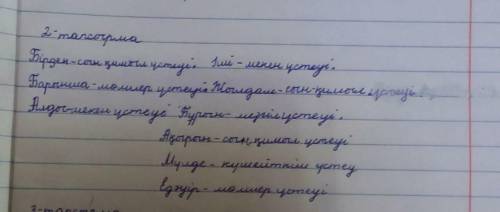 2-тапсорма
Бірден-сын қимыл үстеуі. Ілгі-мекен үстеуі.
Барынша-мөлшер үстеуі. Жылдам-сын-қимыл үстеуі
Алдоғ-мекен үстеуі Бұрын-мезгіл үстеуі.
Ақырын-сын қимыл үстеуі
Мүлде-күшейткіш үстеу
Едәуір-мөлшер үстеуі